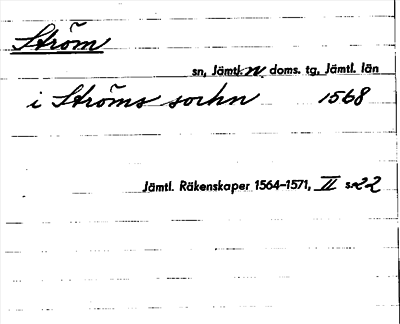 Ström
sn, Jämtl. n doms. tg, Jämtl. län
i Ströms sorhn 1568
Jämtl. Räkenskaper 1564–1571, II s. 22